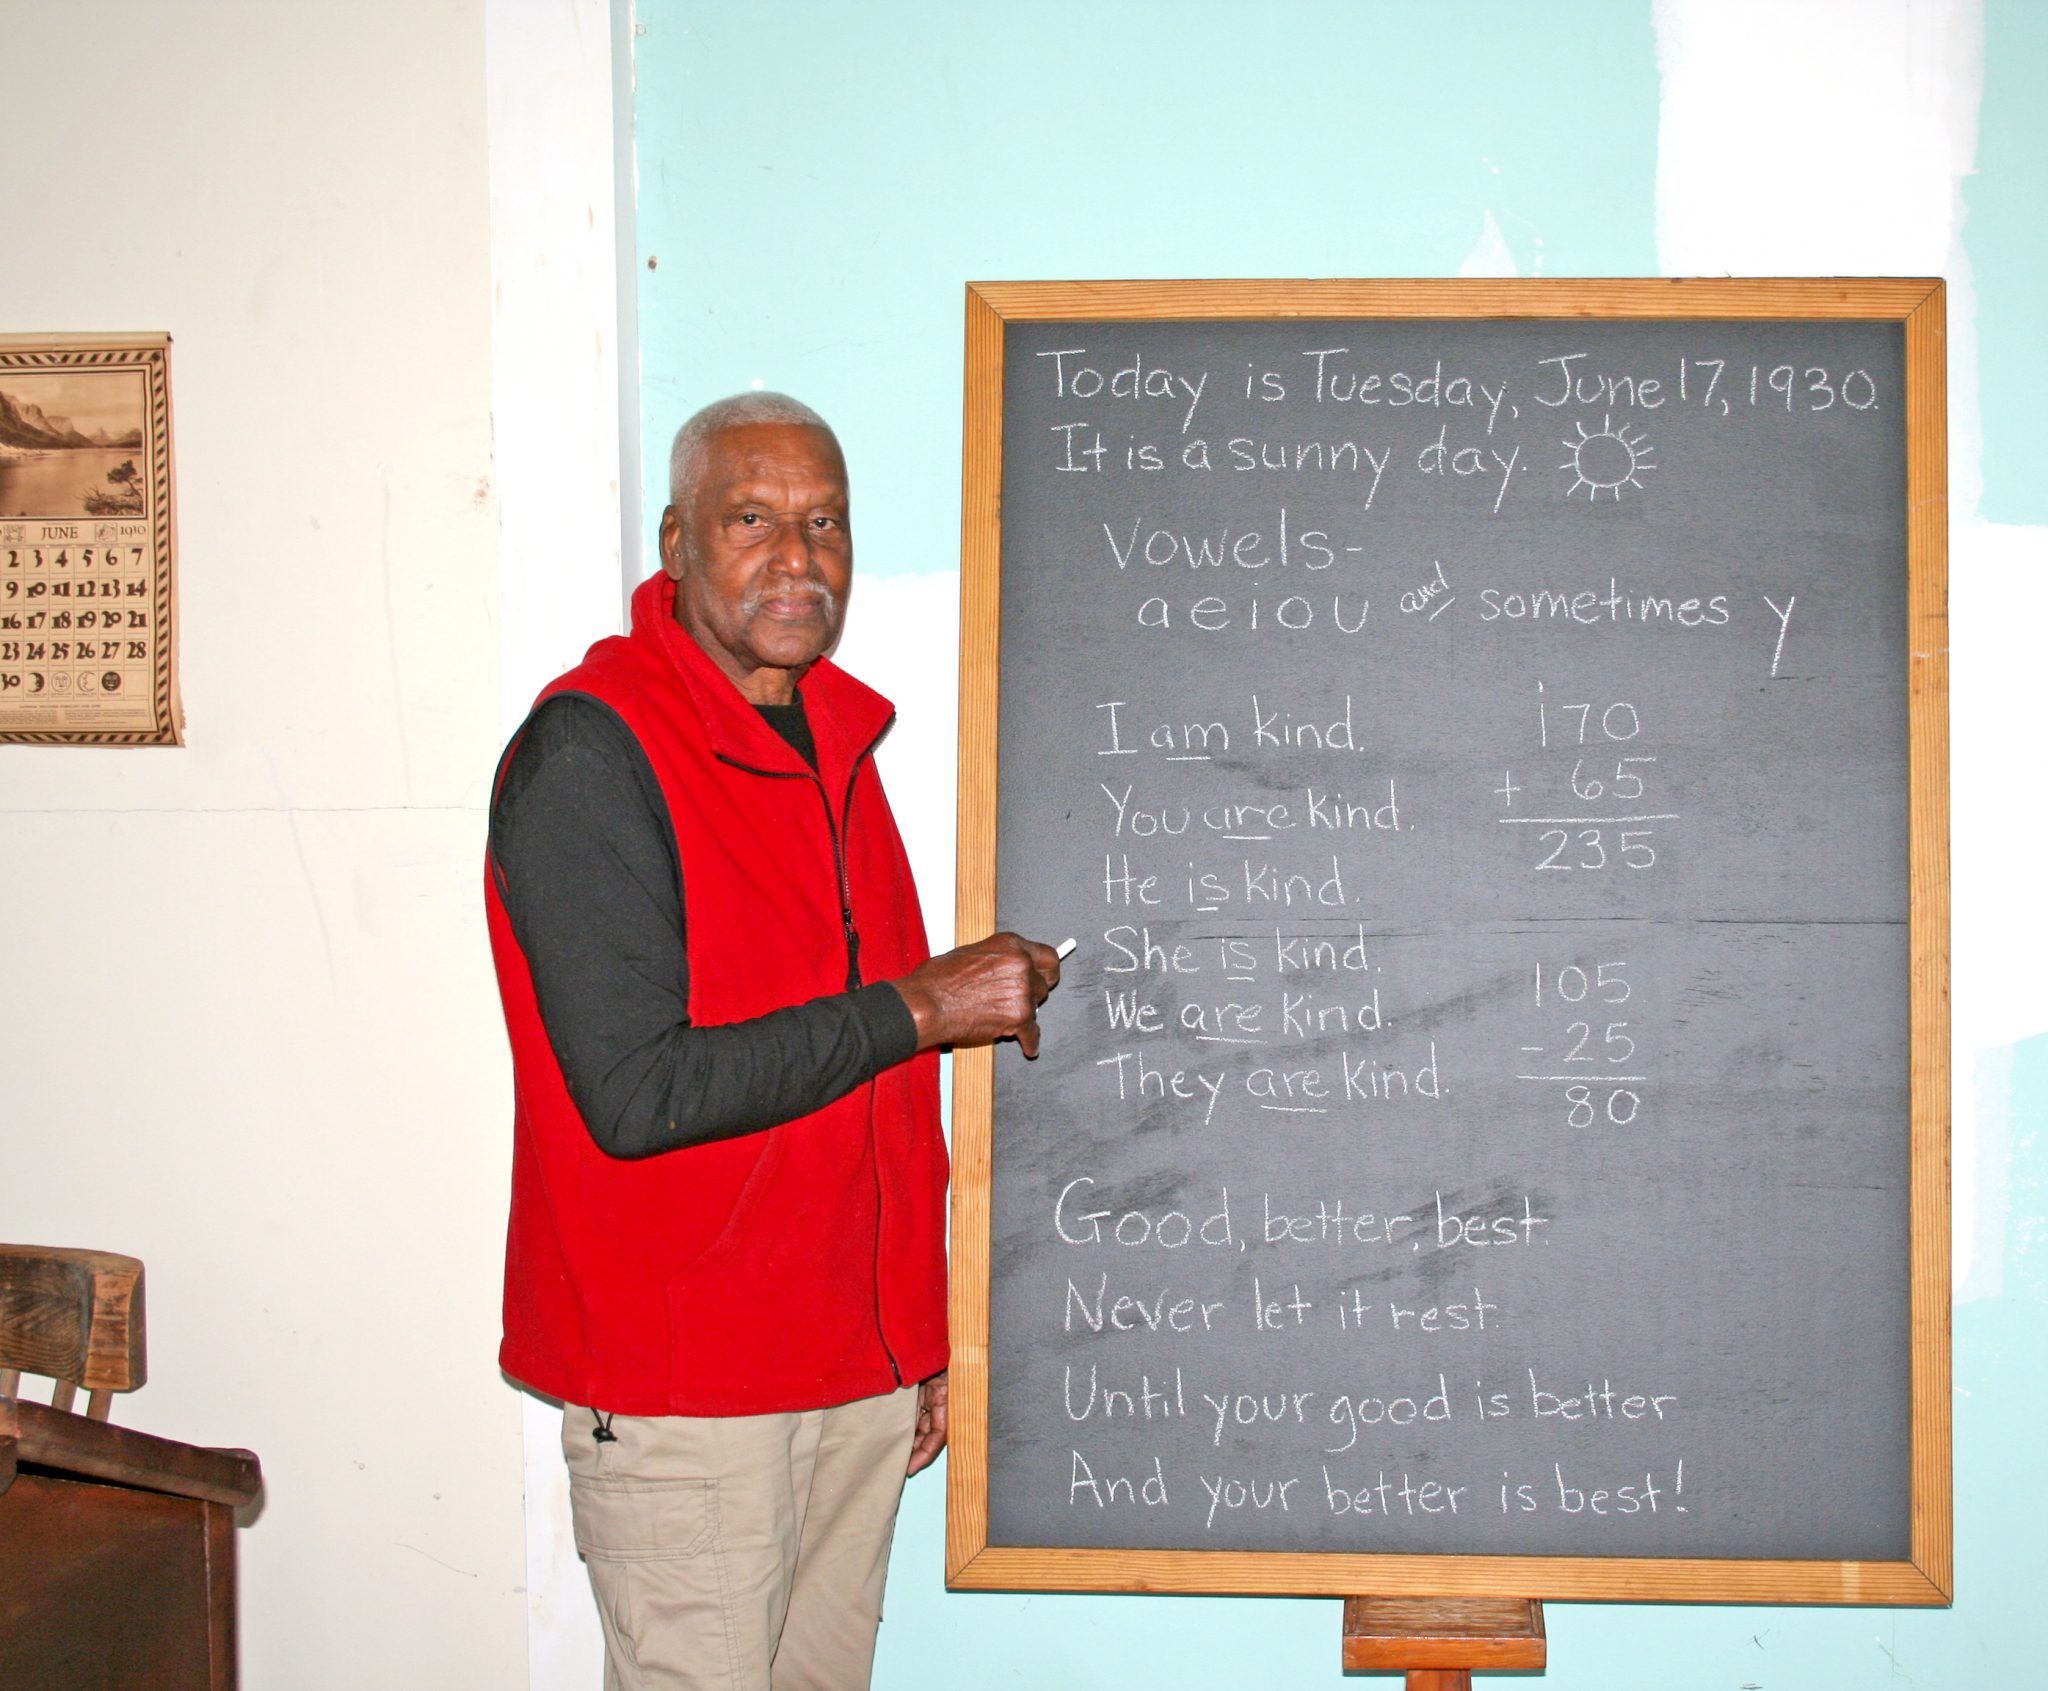 JUNE 1930
2 3 4 5 6 7
9 10 11 12 13 14
16 17 18 19 20 21
23 24 25 26 27 28
30
Today is Tuesday, June 17, 1930.
It is a sunny day.
Vowels-
a e i o u and sometimes y
I am kind.
You are kind.
He is kind.
She is kind.
We are kind.
They are kind.
1
170
+ 65
235
105
- 25
80
Good, better, best.
Never let it rest.
Until your good is better
And your better is best!